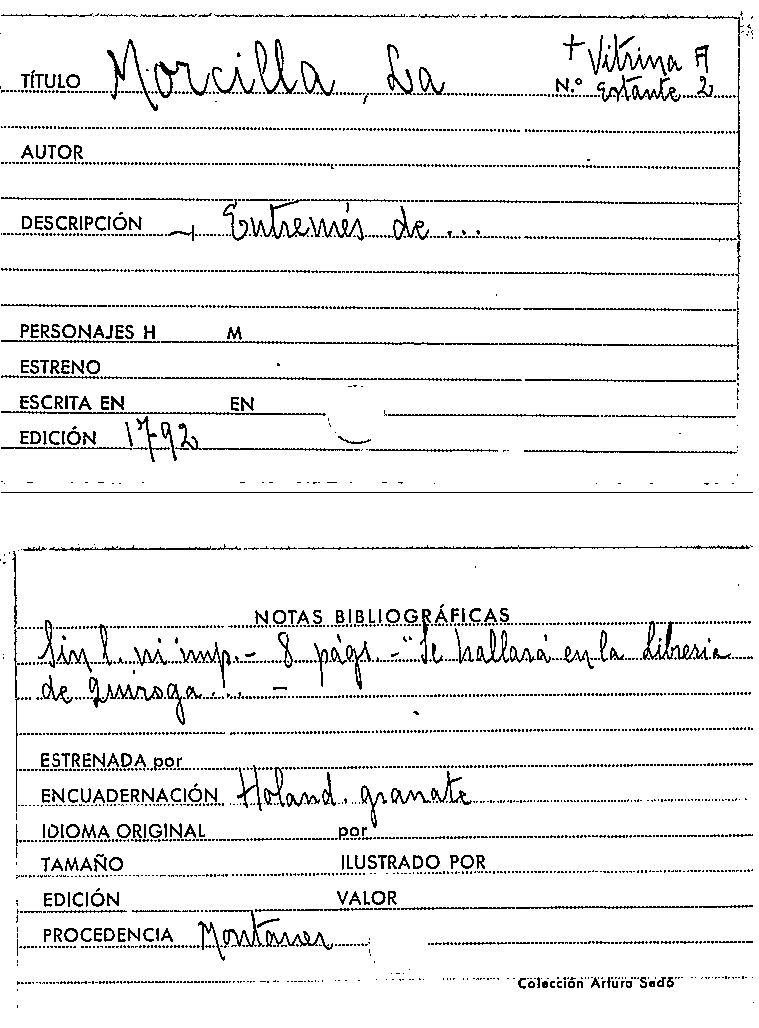 + Vitrina A
TÍTULO Morcilla, La N.º Estante 2
AUTOR
DESCRIPCIÓN Entremés de ...
PERSONAJES H M
ESTRENO
ESCRITA EN EN
EDICIÓN 1792
NOTAS BIBLIOGRÁFICAS
Sin l. ni imp. - 8 págs. - "Se hallará en la Libreria
de Quiroga!.. -
ESTRENADA por
ENCUADERNACIÓN Holand. granate
IDIOMA ORIGINAL por
TAMAÑO ILUSTRADO POR
EDICIÓN VALOR
PROCEDENCIA Montaner
Colección Arturo Sedó